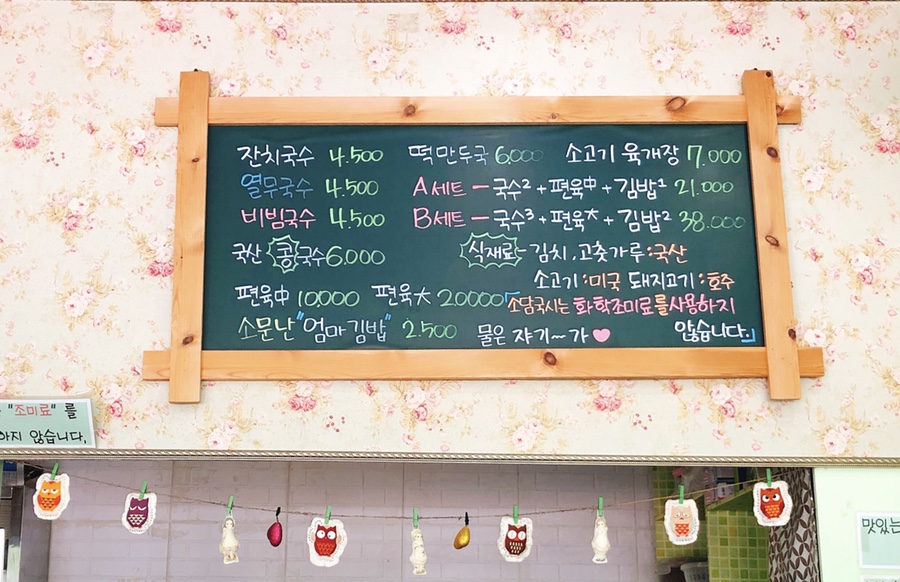 잔치국수 4.500 떡만두국 6.000 소고기 육개장 7.000
열무국수 4.500 A세트 - 국수2 + 편육中 + 김밥1 21.000
비빔국수 4.500 B세트 - 국수3 + 편육大 + 김밥2 38.000
국산 콩국수 6.000 식재료 김치, 고춧가루:국산
소고기:미국 돼지고기:호주
편육中 10.000 편육大 20000 「소담국시는 화학조미료를 사용하지
소문난 "엄마김밥" 2.500 물은 쟈기~가♥ 않습니다.」
"조미료"를
하지 않습니다.
맛있는